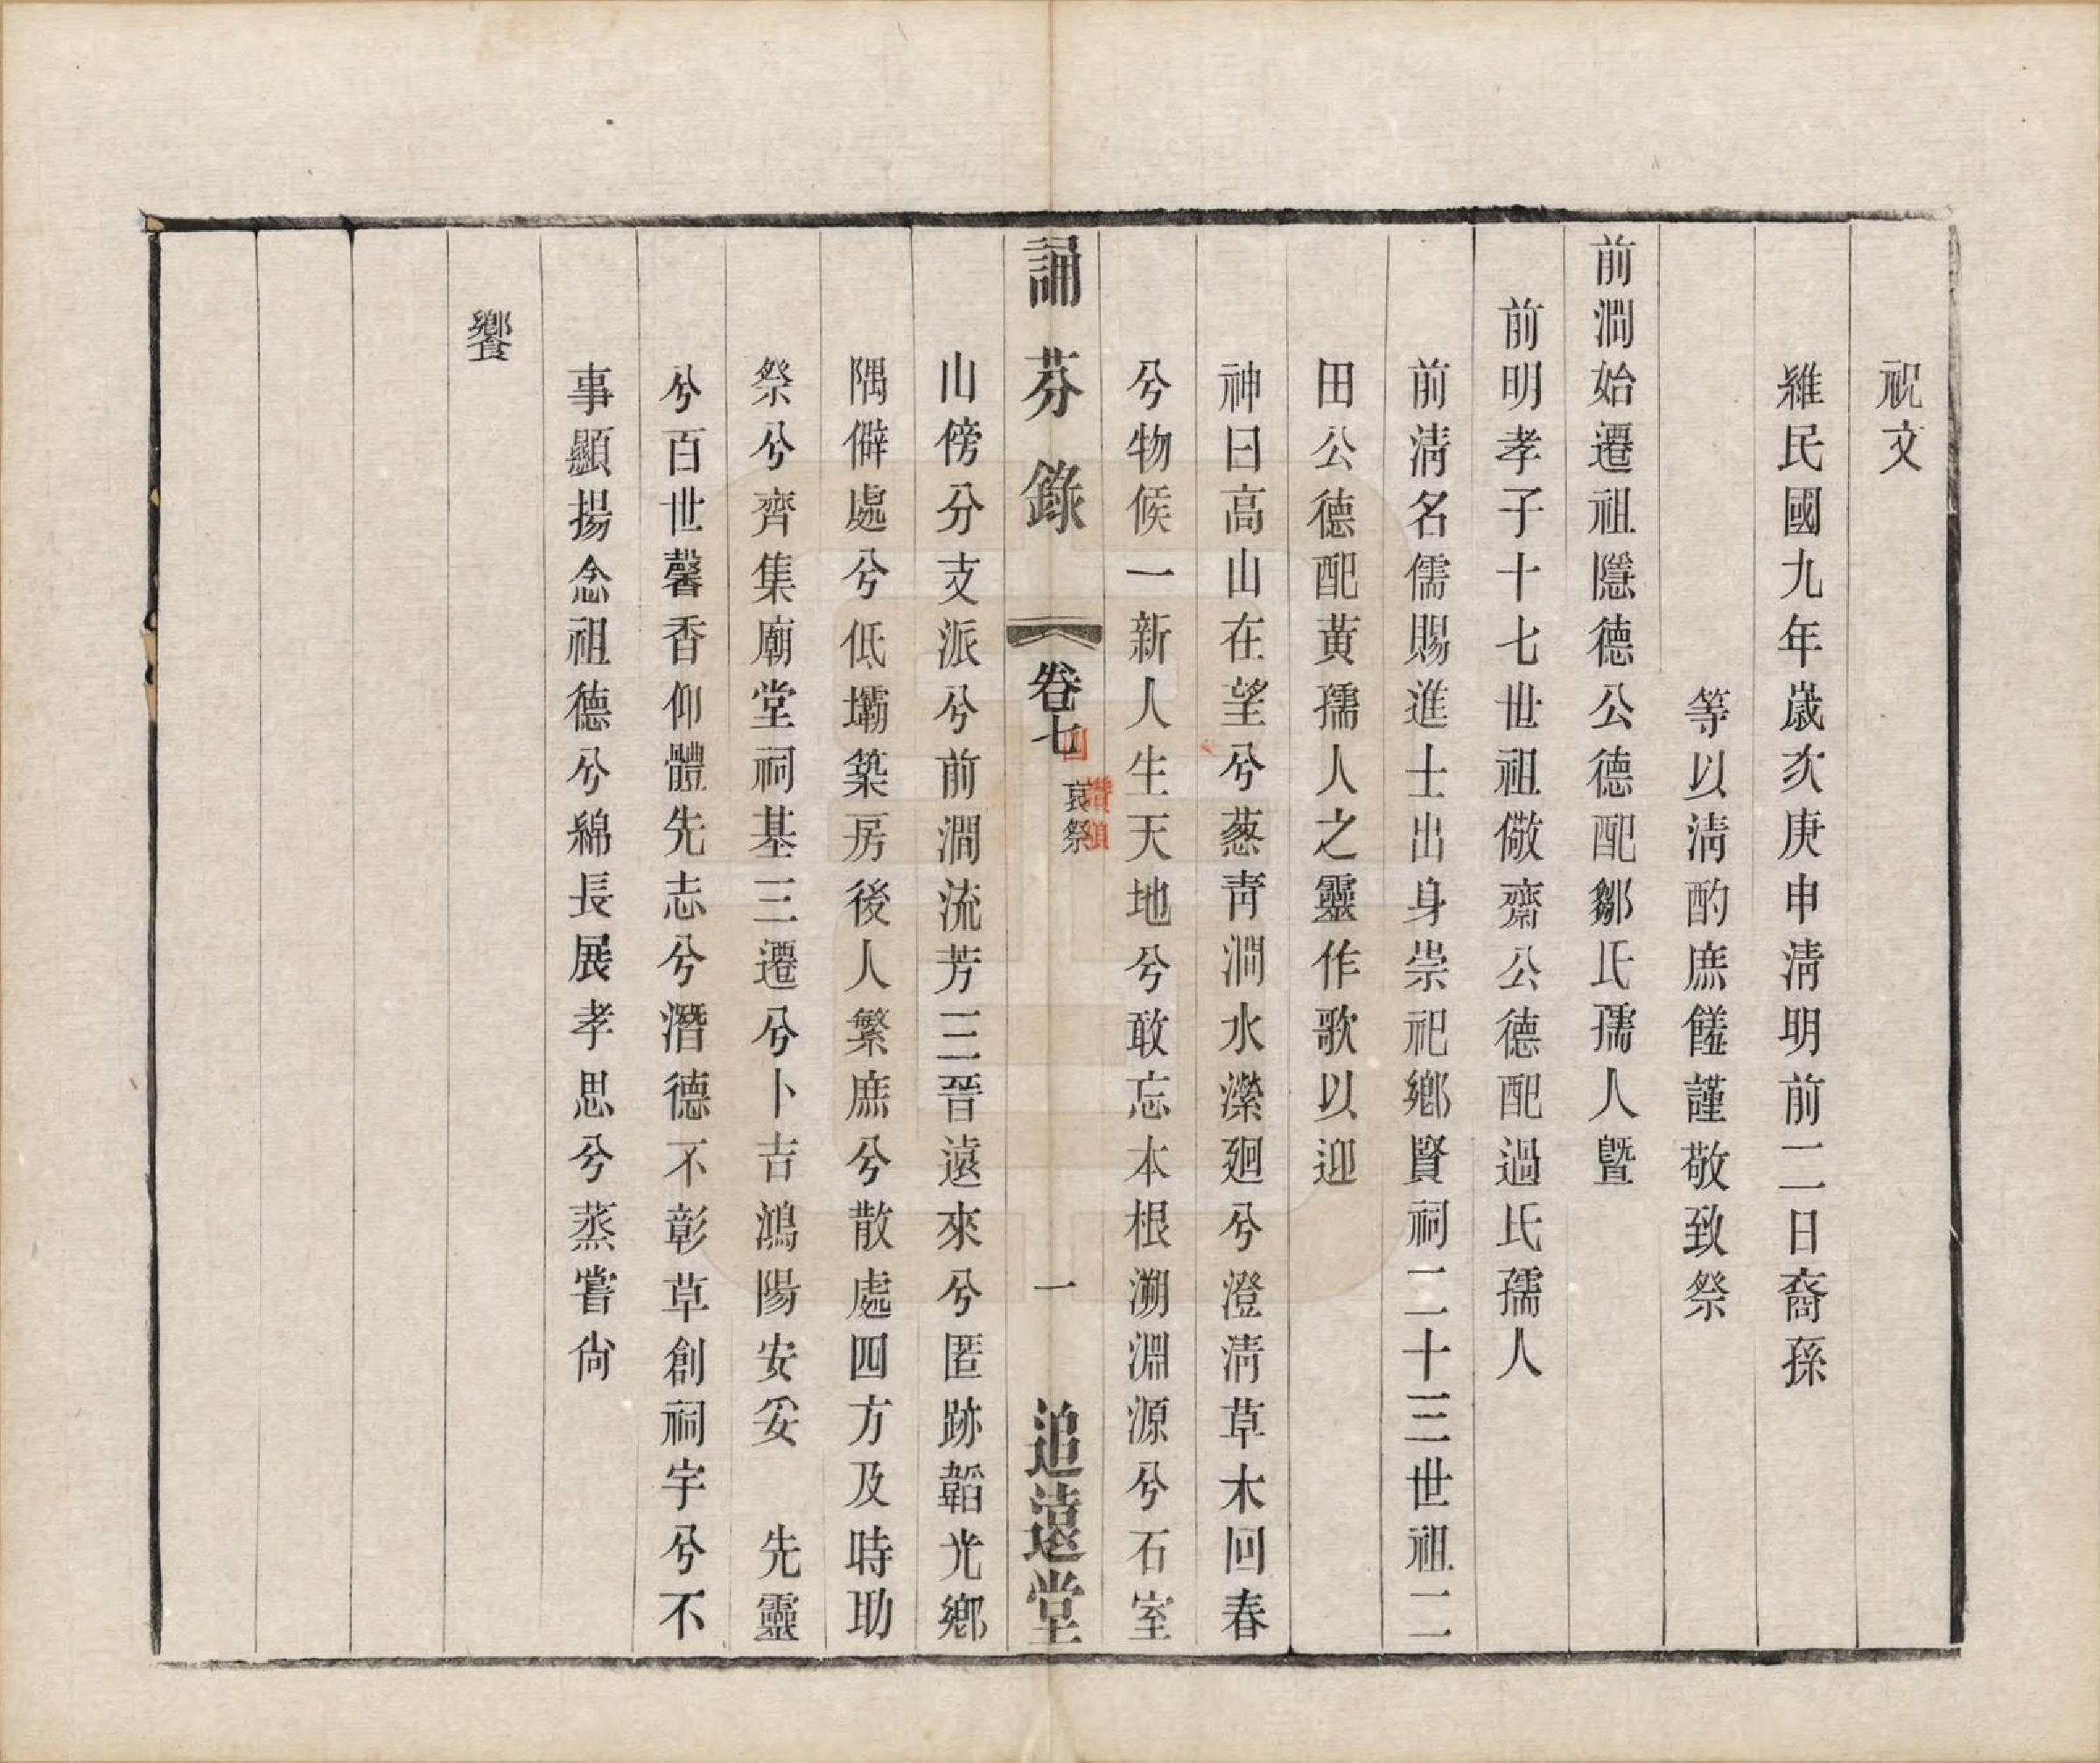 祝文
維民國九年歲次庚申淸明前二日裔孫
等以淸酌庶饈謹敬致祭
前澗始遷祖隱德公德配鄒氏孺人曁
前明孝子十七世祖儆齋公德配過氏孺人
前淸名儒賜進士出身崇祀鄕賢祠二十三世祖二
田公德配黃孺人之靈作歌以迎
神曰高山在望兮葱靑澗水濴廻兮澄淸草木回春
兮物候一新人生天地兮敢忘本根溯淵源兮石室
誦芬錄
卷七
四
哀祭
讚頌
一
追遠堂
山傍分支派兮前澗流芳三晉遠來兮匿跡韜光鄕
隅僻處兮低壩築房後人繁庶兮散處四方及時助
祭兮齊集廟堂祠基三遷兮卜吉鴻陽安妥 先靈
兮百世馨香仰體先志兮潛德不彰草創祠宇兮不
事顯揚念祖德兮綿長展孝思兮蒸嘗尙
饗